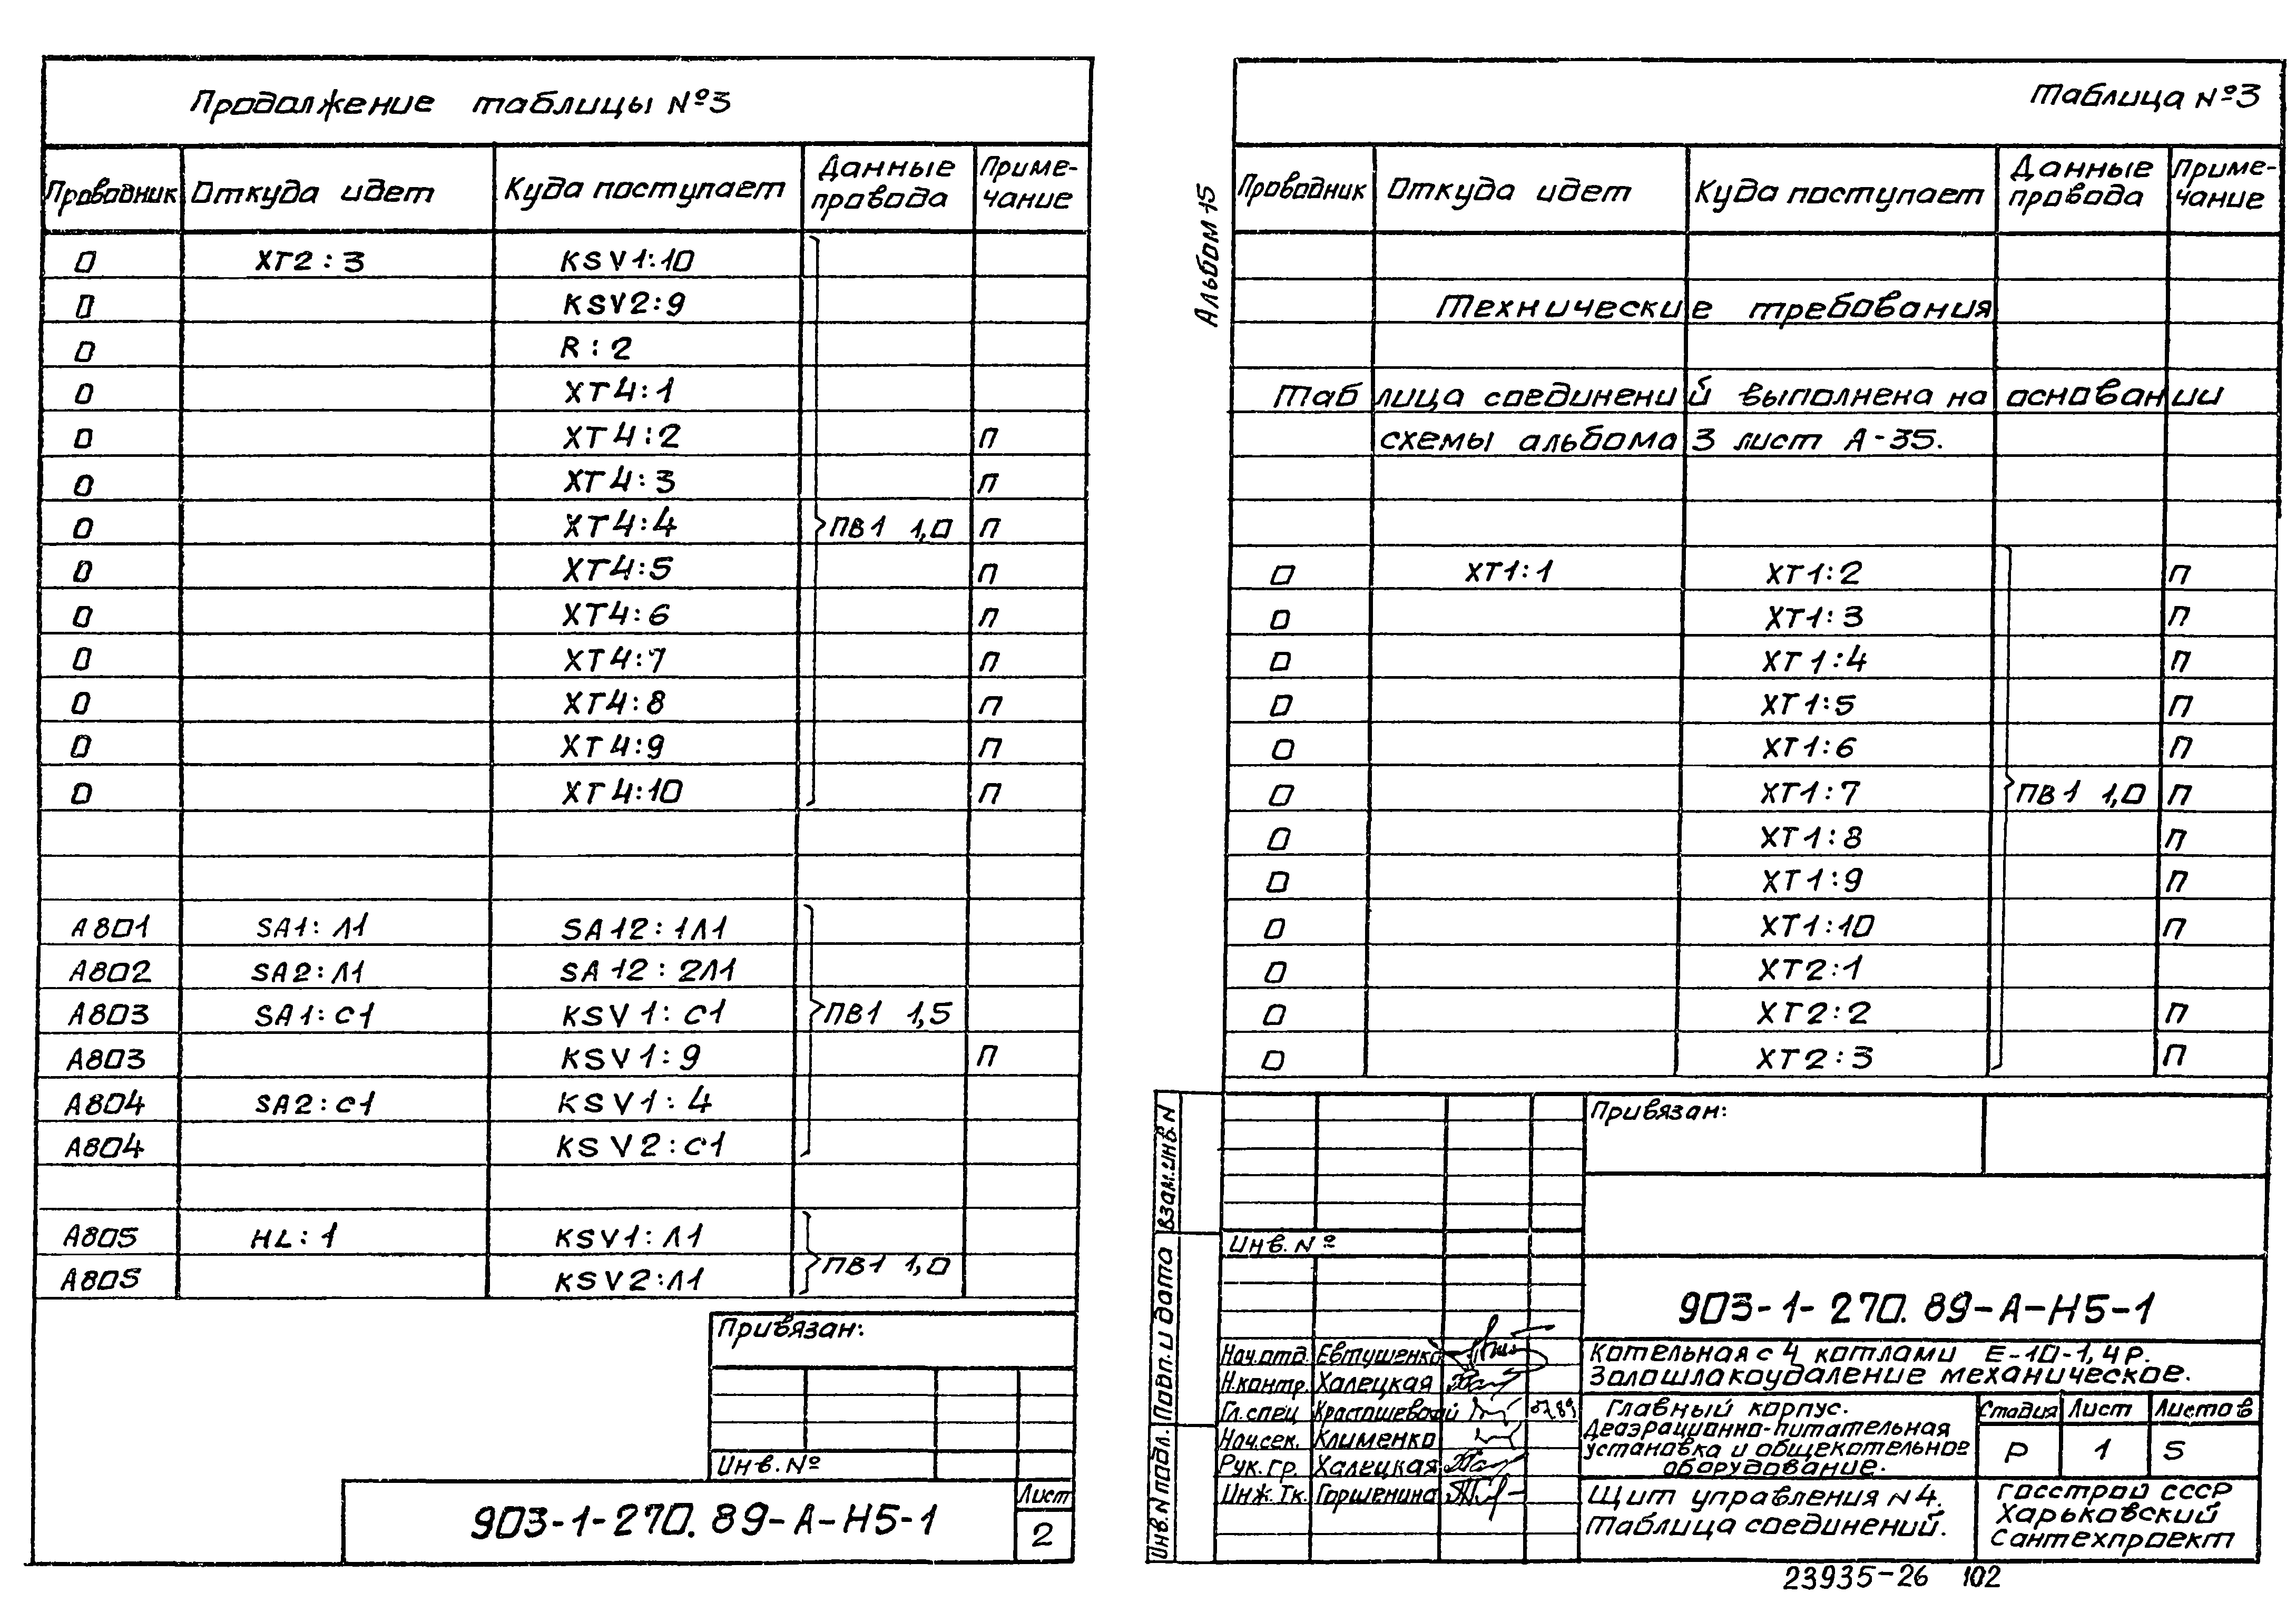 Продолжение таблицы №3
Проводник Откуда идет Куда поступает Данные провода Приме-чание
0 ХТ2:3 KSV1:10
0 KSV2:9
0 R:2
0 ХТ4:1
0 ХТ4:2 П
0 ХТ4:3 П
0 ХТ4:4 ПВ1 1,0 П
0 ХТ4:5 П
0 ХТ4:6 П
0 ХТ4:7 П
0 ХТ4:8 П
0 ХТ4:9 П
0 ХТ4:10 П
А801 SA1:Л1 SA12:1Л1
А802 SA2:Л1 SA12:2Л1
А803 SA1:С1 KSV1:С1 ПВ1 1,5
А803 KSV1:9 П
А804 SA2:С1 KSV1:4
А804 KSV2:С1
А805 HL:1 KSV1:Л1
ПВ1 1,0
А805 KSV2:Л1
Привязан:
Инв. №
903-1-270.89-А-Н5-1
Лист
2
Таблица №3
Альбом 15
Проводник Откуда идет Куда поступает Данные провода Приме-чание
Технические требования
Таблица соединений выполнена на основании
схемы альбома 3 лист А-35.
0 ХТ1:1 ХТ1:2 П
0 ХТ1:3 П
0 ХТ1:4 П
0 ХТ1:5 П
0 ХТ1:6 П
0 ХТ1:7 ПВ1 1,0 П
0 ХТ1:8 П
0 ХТ1:9 П
0 ХТ1:10 П
0 ХТ2:1
0 ХТ2:2 П
0 ХТ2:3 П
Взам.инв.N
Подп. и дата
Инв.N подл.
Привязан:
Инв. №
903-1-270.89-А-Н5-1
Нач.отд. Евтушенко
Н.контр. Халецкая
Гл.спец Красташевский
Нач.сек. Клименко
Рук. гр. Халецкая
Инж. Тк. Горшенина
Котельная с 4 котлами Е-10-1,4Р.
Золошлакоудаление механическое.
Главный корпус.
Деаэрационно-питательная
установка и общекотельное
оборудование.
Стадия Лист Листов
Р 1 5
Щит управления N4.
Таблица соединений.
Госстрой СССР
Харьковский
Сантехпроект
23935-26 102